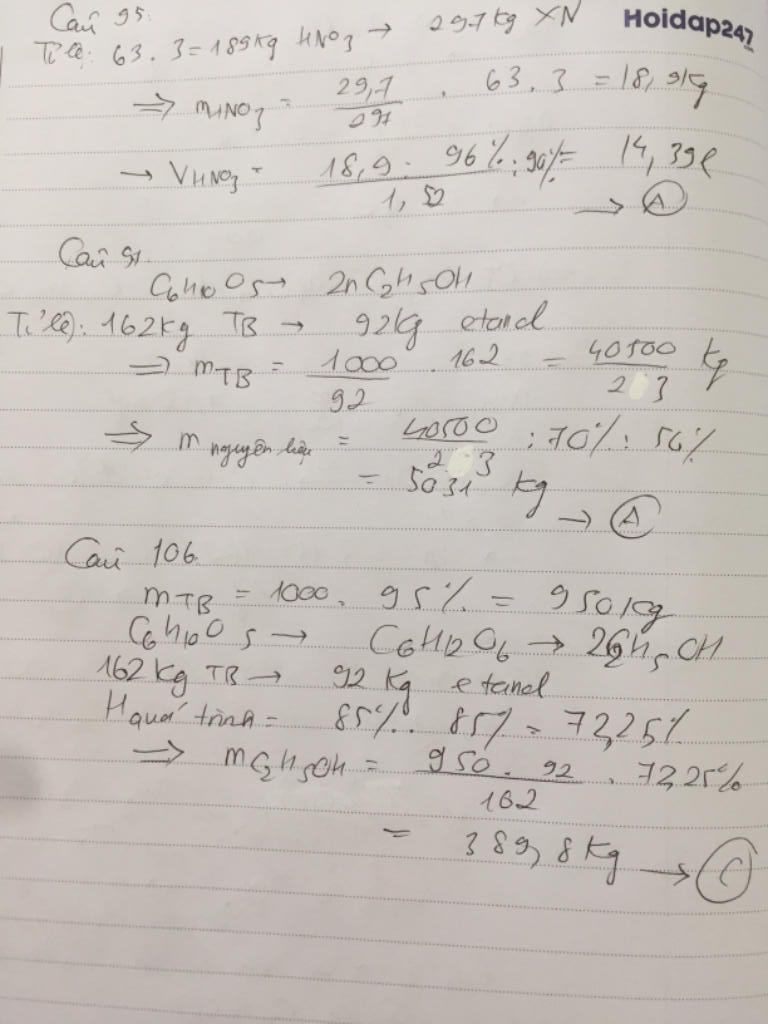 Câu 95.
Hoidap247
Tỉ lệ: 63.3 = 189kg HNO3 → 297kg XN
⇒ mHNO3 = 29,7/297 . 63.3 = 18,9kg
→ VHNO3 = 18,9 . 96% / 1,52 : 90% = 14,39l
→ A
Câu 91.
C6H10O5 → 2nC2H5OH
Tỉ lệ: 162kg TB → 92kg etanol
⇒ mTB = 1000/92 . 162 = 40500/23 kg
⇒ m nguyên liệu = 40500/23 : 70% : 50%
= 5031 kg
→ A
Câu 106.
mTB = 1000. 95% = 950kg
C6H10O5 → C6H12O6 → 2C2H5OH
162kg TB → 92 Kg etanol
H quá trình = 85%. 85% = 72,25%
⇒ mC2H5OH = 950 . 92 / 162 . 72,25%
= 389,8 Kg → C